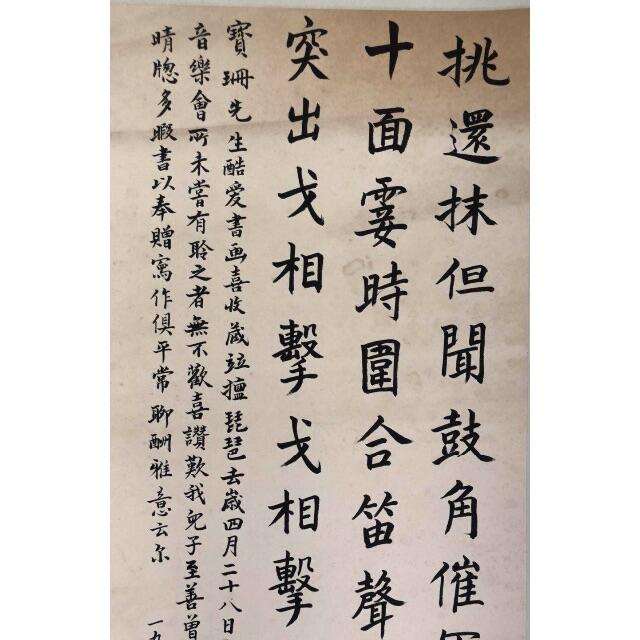 挑還抹但聞鼓角催軍
十面霎時圍合笛聲
突出戈相擊戈相擊
寶珊先生酷爱書画喜收蔵竝擅琵琶去嵗四月二十八日
音樂會所未嘗有聆之者無不歡喜讃歎我兒子至善曾
晴牕多暇書以奉贈寫作俱平常聊酬雅意云尔
一九